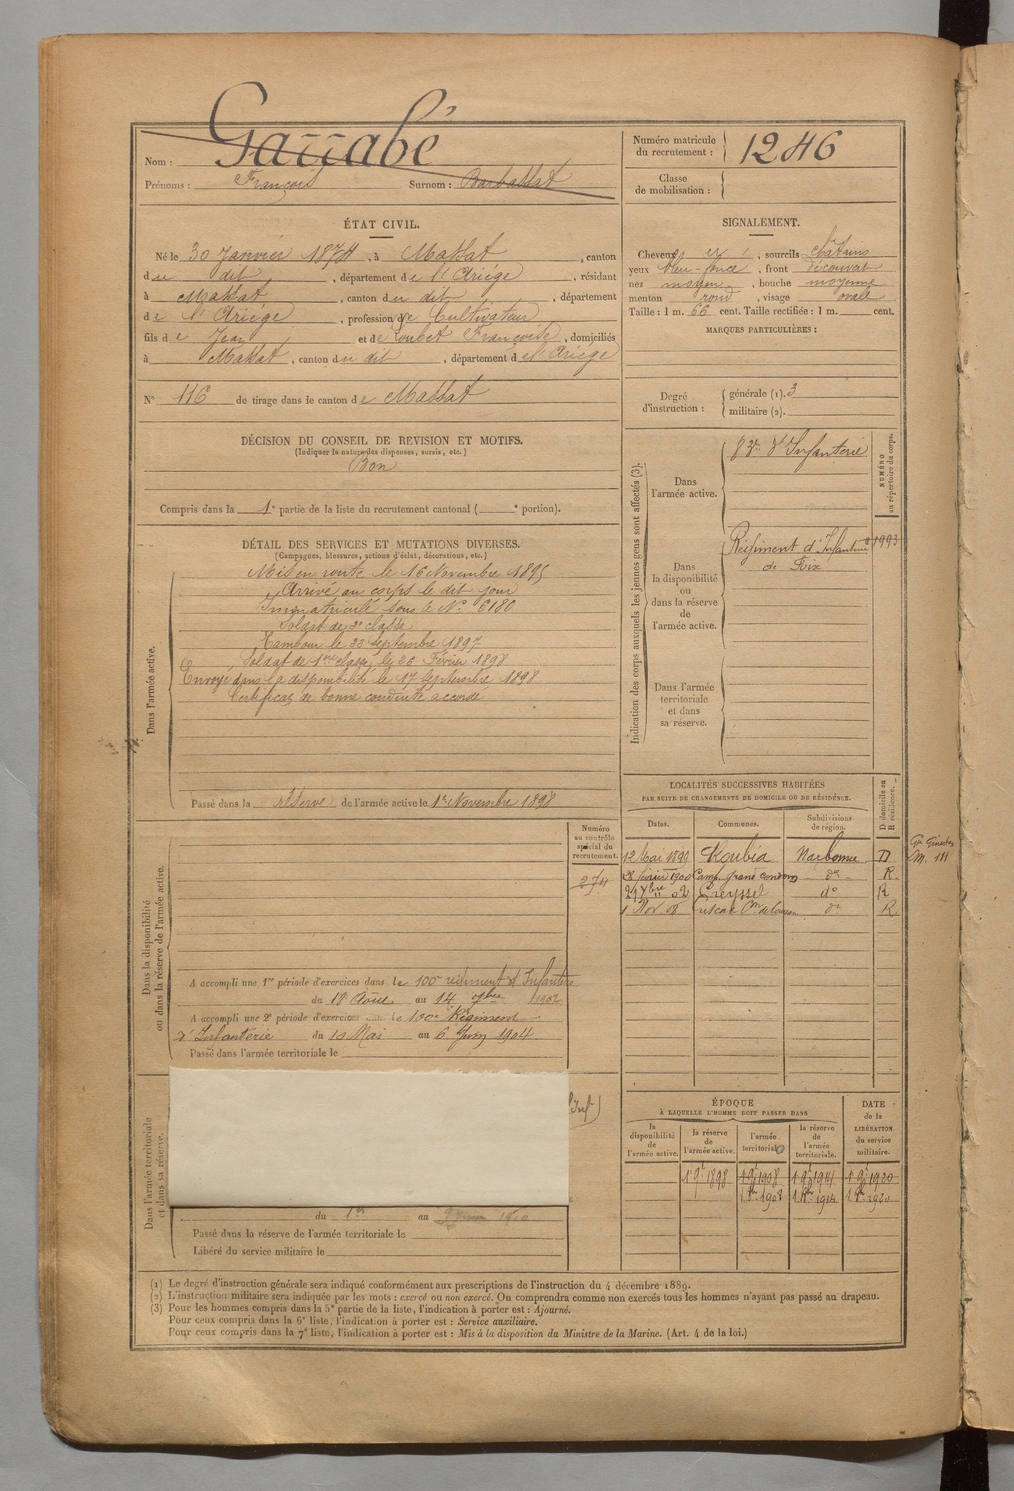 Nom : Garrabé
Prénoms : François Surnom :
Numéro matricule du recrutement : 1246
Classe de mobilisation :
ÉTAT CIVIL.
Né le 30 Janvier 1874, à Massat, canton
du dit, département de l'Ariège, résidant
à Massat, canton du dit, département
de l'Ariège, profession de Cultivateur
fils de Jean et de Loubet Françoise, domiciliés
à Massat, canton du dit, département de l'Ariège
N° 116 de tirage dans le canton de Massat
SIGNALEMENT.
Cheveux et, sourcils châtains
yeux bleu-foncé, front découvert
nez moyen, bouche moyenne
menton rond, visage ovale
Taille : 1 m. 66 cent. Taille rectifiée : 1 m. cent.
MARQUES PARTICULIÈRES :
Degré d'instruction : générale (1). 3
militaire (2).
DÉCISION DU CONSEIL DE REVISION ET MOTIFS.
(Indiquer la nature des dispenses, sursis, etc.)
Bon
Compris dans la 1e partie de la liste du recrutement cantonal ( e portion).
DÉTAIL DES SERVICES ET MUTATIONS DIVERSES.
(Campagnes, blessures, actions d'éclat, décorations, etc.)
Dans l'armée active.
Mis en route le 16 Novembre 1895
Arrivé au corps le dit jour
Immatriculé sous le N° 6180
Soldat de 2e classe
Tambour le 22 Septembre 1897
Soldat de 1re classe le 26 Février 1898
Envoyé dans la disponibilité le 17 Septembre 1898
Certificat de bonne conduite accordé
Passé dans la réserve de l'armée active le 1er Novembre 1898
Indication des corps auxquels les jeunes gens sont affectés (3).
NUMÉRO au répertoire du corps.
Dans l'armée active.
83e d'Infanterie
Dans la disponibilité ou dans la réserve de l'armée active.
Régiment d'Infanterie 1993
de Foix
Dans l'armée territoriale et dans sa réserve.
LOCALITÉS SUCCESSIVES HABITÉES
PAR SUITE DE CHANGEMENTS DE DOMICILE OU DE RÉSIDENCE.
Dates. Communes. Subdivisions de région. D domicile ou R résidence.
12 Mai 1899 Narbonne D
Février 1900 do R
02 Creyssel do R
1 Nov 08 do R
Dans la disponibilité ou dans la réserve de l'armée active.
Numéro au contrôle spécial du recrutement.
274
A accompli une 1re période d'exercices dans le 100e régiment d'Infanterie
du 18 Août au 14 7bre 1902
A accompli une 2e période d'exercices dans le 100e Régiment
d'Infanterie du 10 Mai au 6 Juin 1904
Passé dans l'armée territoriale le
Dans l'armée territoriale et dans sa réserve.
du 1er au 1910
Passé dans la réserve de l'armée territoriale le
Libéré du service militaire le
ÉPOQUE
À LAQUELLE L'HOMME DOIT PASSER DANS
DATE de la LIBÉRATION du service militaire.
la disponibilité de l'armée active. la réserve de l'armée active. l'armée territoriale la réserve de l'armée territoriale.
1 9bre 1898 1 9bre 1908 1 9bre 1914 1 9bre 1920
1908 1914 1920
(1) Le degré d'instruction générale sera indiqué conformément aux prescriptions de l'instruction du 4 décembre 1889.
(2) L'instruction militaire sera indiquée par les mots : exercé ou non exercé. On comprendra comme non exercés tous les hommes n'ayant pas passé au drapeau.
(3) Pour les hommes compris dans la 5e partie de la liste, l'indication à porter est : Ajourné.
Pour ceux compris dans la 6e liste, l'indication à porter est : Service auxiliaire.
Pour ceux compris dans la 7e liste, l'indication à porter est : Mis à la disposition du Ministre de la Marine. (Art. 4 de la loi.)